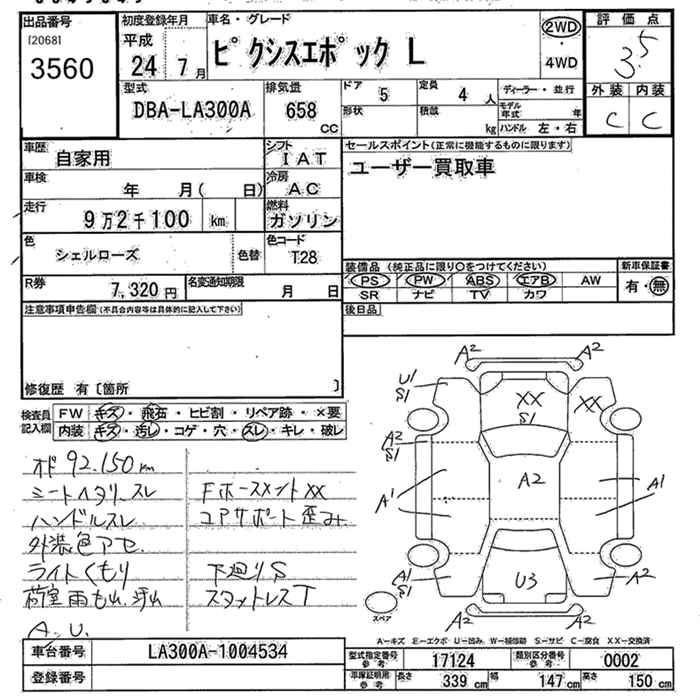 出品番号
[2068]
3560
初度登録年月
平成
24 7月
車名・グレード
ピクシスエポック L
2WD
・
4WD
評価点
3.5
外装 内装
C C
型式
DBA-LA300A
排気量
658
cc
ドア 5
定員 4 人
ディーラー・並行
形状
積載 kg
モデル年式 年
ハンドル 左・右
車歴
自家用
シフト
IAT
車検
年 月( 日)
冷房
AC
走行
9万2千100 km
燃料
ガソリン
色
シェルローズ
色替
色コード
T28
R券
7,320 円
名変通知期限
月 日
セールスポイント(正常に機能するものに限ります)
ユーザー買取車
装備品 (純正品に限り○をつけてください)
PS PW ABS エアB AW
SR ナビ TV カワ
新車保証書
有・無
後日品
注意事項申告欄(不具合内容等は具体的に記入して下さい)
修復歴 有〔箇所 〕
検査員
記入欄
FW キズ・飛石・ヒビ割・リペア跡・×要
内装 キズ・汚レ・コゲ・穴・スレ・キレ・破レ
オド 92.150km
シートヘタリ.スレ
ハンドルスレ
外装色アセ.
ライトくもり
荷室雨もれ.汚れ
A.U.
FホースメントXX
コアサポート歪み
下廻りS
スタットレスT
A2 A2
U1
S1
XX
S1
XX
A2
S1
A2
A1
A1
A1
S1
U3
A2
A2 A2
スペア
A-キズ E-エクボ U-凹み W-補修跡 S-サビ C-腐食 XX-交換済
車台番号
LA300A-1004534
登録番号
型式指定番号
参考
17124
類別区分番号
参考
0002
車庫証明用
参考
長さ 339 cm
幅 147 cm
高さ 150 cm